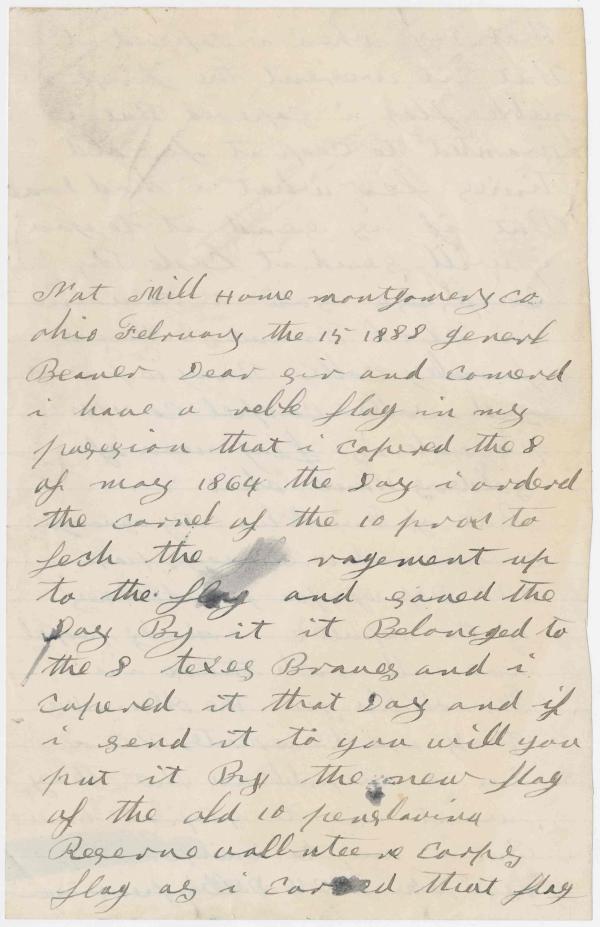 Nat Mill Home montgomery co
ohio February the 15 1888 generl
Beaver Dear sir and Comerd
i have a relk flag in my
possesion that i capered the 8
of may 1864 the Day i orderd
the cornel of the 10 to
fech the ragement up
to the flag and saved the
Day By it it Belonged to
the 8 texes Braves and i
capered it that Day and if
i send it to you will you
put it By the new flag
of the old 10
Reserve Corps
flag as i carred that flag